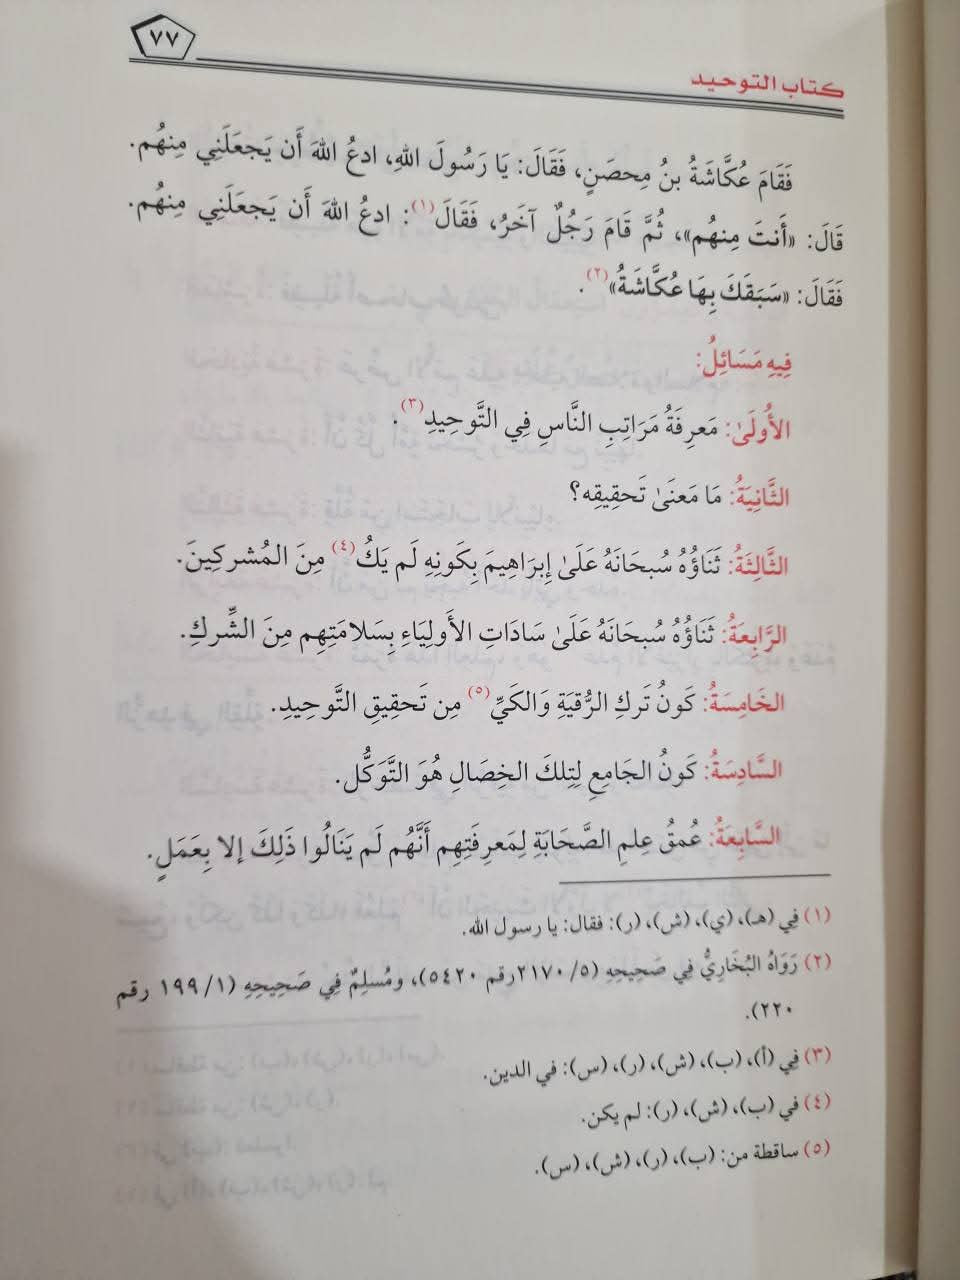 ٧٧
كتاب التوحيد
فَقَامَ عُكَّاشَةُ بنُ مِحصَنٍ، فَقَالَ: يَا رَسُولَ اللهِ، ادعُ اللهَ أَن يَجعَلَنِي مِنهُم.
قَالَ: «أَنتَ مِنهُم»، ثُمَّ قَامَ رَجُلٌ آخَرُ، فَقَالَ(١): ادعُ اللهَ أَن يَجعَلَنِي مِنهُم.
فَقَالَ: «سَبَقَكَ بِهَا عُكَّاشَةُ»(٢).
فِيهِ مَسَائِلُ:
الأُولَىٰ: مَعرِفَةُ مَرَاتِبِ النَّاسِ فِي التَّوحِيدِ(٣).
الثَّانِيَةُ: مَا مَعنَىٰ تَحقِيقِه؟
الثَّالِثَةُ: ثَنَاؤُهُ سُبحَانَهُ عَلَىٰ إِبرَاهِيمَ بِكَونِهِ لَم يَكُ(٤) مِنَ المُشرِكِينَ.
الرَّابِعَةُ: ثَنَاؤُهُ سُبحَانَهُ عَلَىٰ سَادَاتِ الأَولِيَاءِ بِسَلامَتِهِم مِنَ الشِّركِ.
الخَامِسَةُ: كَونُ تَركِ الرُّقيَةِ وَالكَيِّ(٥) مِن تَحقِيقِ التَّوحِيدِ.
السَّادِسَةُ: كَونُ الجَامِعِ لِتِلكَ الخِصَالِ هُوَ التَّوَكُّل.
السَّابِعَةُ: عُمقُ عِلمِ الصَّحَابَةِ لِمَعرِفَتِهِم أَنَّهُم لَم يَنَالُوا ذَلِكَ إلا بِعَمَلٍ.
(١) فِي (هـ)، (ي)، (ش)، (ر): فقال: يا رسول الله.
(٢) رَوَاهُ البُخَارِيُّ فِي صَحِيحِهِ (٥/ ٢١٧٠رقم ٥٤٢٠)، ومُسلِمٌ فِي صَحِيحِهِ (١/ ١٩٩ رقم
٢٢٠).
(٣) فِي (أ)، (ب)، (ش)، (ر)، (س): في الدين.
(٤) في (ب)، (ش)، (ر): لم يكن.
(٥) ساقطة من: (ب)، (ر)، (ش)، (س).